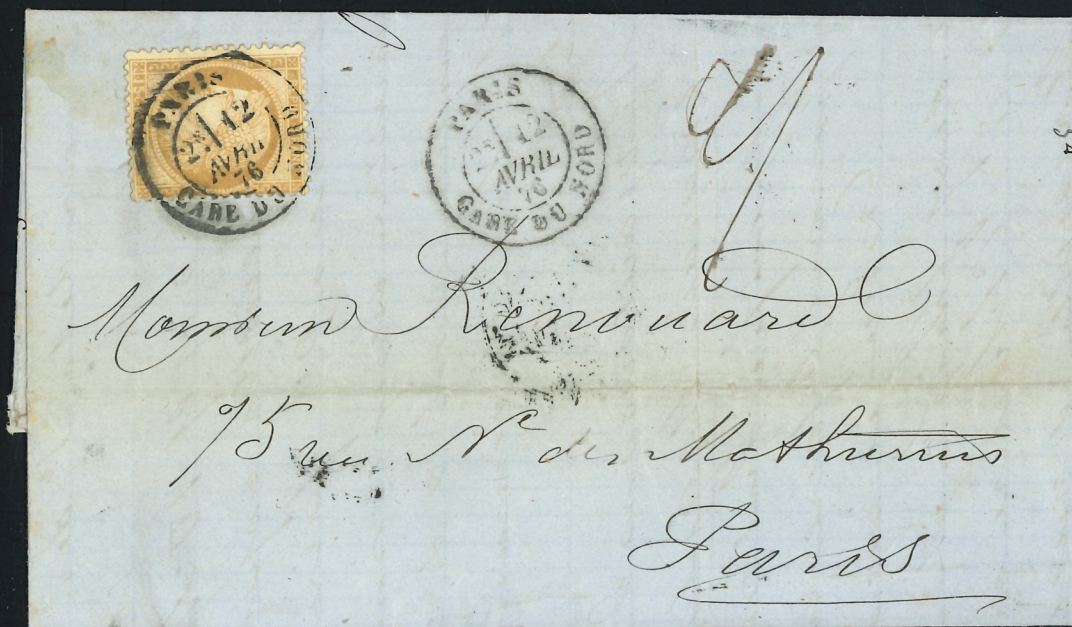 PARIS
2E 12
AVRIL
76
GARE DU NORD
PARIS
2E 12
AVRIL
76
GARE DU NORD
Monsieur Renouard
75 rue Nve des Mathurins
Paris